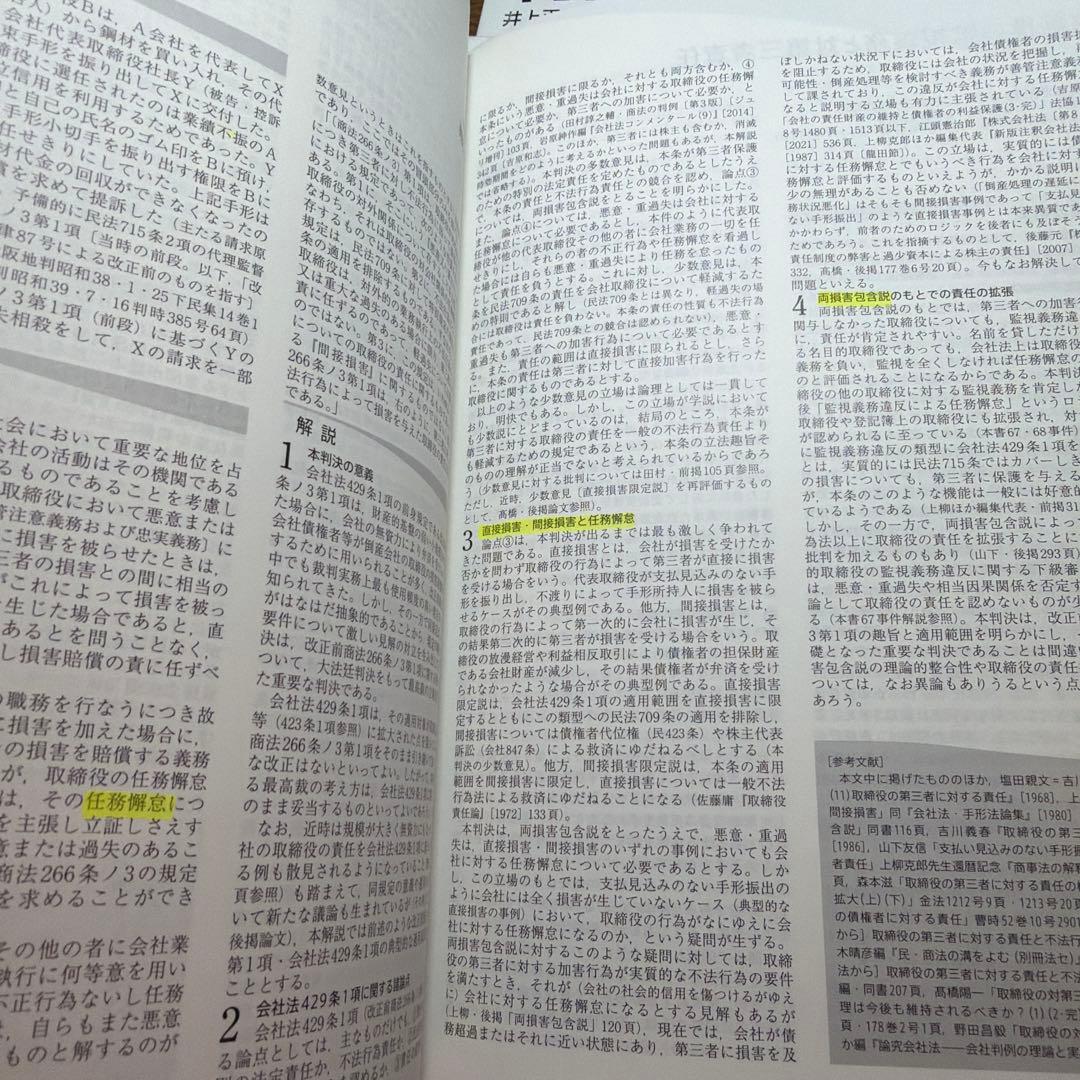 井上
役Bは，A会社を代表してX
人）から鋼材を買い入れ，その代
会社代表取締役社長Y（被告・控訴
束手形を振り出してXに交付した。
締役に選任されたのは業績不振のA
立信用を利用するためであった。Y
印と自己の氏名のゴム印をBに預け，
手形小切手を振り出す権限をBに
任せきりにしていた。上記手形は
材代金の回収ができなくなったの
賞を求めて提訴した（主たる請求原
予備的に民法715条2項の代理監督
ノ3第1項［当時の前段。以下，「改
津87号による改正前のものを指す］
阪地判昭和38・1・25下民集14巻1
判昭和39・7・16判時385号64頁）
ノ3第1項（前段）に基づくYの
失相殺をして，Xの請求を一部
社会において重要な地位を占
会社の活動はその機関である
るものであることを考慮し
取締役において悪意または
管注意義務および忠実義務〕に
に損害を被らせたときは，
三者の損害との間に相当の
がこれによって損害を被っ
生じた場合であると，直
あるとを問うことなく，
し損害賠償の責に任ずべ
の職務を行なうにつき故
に損害を加えた場合に，
の損害を賠償する義務
が，取締役の任務懈怠
は，その任務懈怠につ
を主張し立証しさえす
意または過失のあるこ
商法266条ノ3の規定
を求めることができ
その他の者に会社業
執行に何等意を用い
不正行為ないし任務
，自らもまた悪意
ものと解するのが
数意見というときは
であり，ここで
「〔商法266条ノ3
につき第三者に対し
における規定であって，
取締役の対外関係について
なわち，それは取締役の
存するものではない。第2に，
規定は，民法709条の
条の適用を排除するもの
取締役は，対外的の
又は重大な過失のある
責に任ずるのであって，軽過失
のではない。第3に，
についての取締役の責任に関する
『間接損害』に関するものではない
266条ノ3第1項は，右のように
法行為によって損害を与えた取締役の
である。」
解 説
1 本判決の意義
会社法429条1項の前身規定である
条ノ3第1項は，財産的基盤の弱い
た場合に，会社の無資力により弁済を
会社債権者等が倒産会社の取締役の
するために用いられることが多く，
中でも裁判実務上最も使用頻度の高い
知られてきた。しかし，その一方で
がはなはだ抽象的であることから，
要件について激しい見解の対立を生んで
ついて，大法廷判決をもって最高裁の立場を
た重要な判決である。
会社法429条1項は，その適用対象が
等（423条1項参照）に拡大された点を
商法266条ノ3第1項をそのまま引き継いで
な改正はないといってよい。したがって，
る最高裁の考え方は，会社法429条1項
のまま妥当するものといってよいであろう。
なお，近時は規模が大きく（無資力に
社の取締役の責任を会社法429条1項に
る例も散見されるようになっていること
頁参照）も踏まえて，同規定の意義や
いて新たな議論も生まれているが（
後掲論文），本解説では前述のような
第1項・会社法429条1項の典型的な適用
こととする。
2 会社法429条1項に関する諸論点
会社法429条1項（改正前商法266条ノ3
る論点としては，主なものだけでも，
則の法定責任か，不法行為責任か，
限るか，間接損害に限るか，それとも両方含むか，④
本条にいう悪意・重過失は会社に対する取締役の任務懈
怠について必要か，第三者への加害について必要か，と
いったものがある（田村諄之輔・商法の判例〔第3版〕［ジュ
リ増刊］103頁，岩原紳作編『会社法コンメンタール(9)』［2014］
342頁〔吉原和志〕。このほか，第三者には株主も含むか，消滅
時効期間をどのように考えるかといった問題もあるが，本解説
では省略する）。本判決の多数意見は，本条が第三者保護
のための特別の法定責任を定めたものであるとしたうえ
で，本条の責任と不法行為責任との競合を認め，論点③
については，両損害包含説をとることを明らかにした。
また，論点④については，悪意・重過失は会社に対する
任務懈怠について必要であるとし，本件のように代表取
締役が他の代表取締役その他の者に会社業務の一切を任
せきりにし，それらの者の不正行為や任務懈怠を看過し
た場合には自らも悪意・重過失により任務を怠ったもの
として責任を負うとする。これに対し，少数意見は，本
条を民法709条の責任を会社取締役について軽減するた
めの特則であると解し（民法709条とは異なり，軽過失の場
合には取締役は責任を負わない。本条の責任の性質も不法行為
責任であって，民法709条との競合は認められない），悪意・
重過失も第三者への加害行為について必要であるとす
る。また，責任の範囲は直接損害に限られるとし，さら
に，本条の責任は第三者に対して直接加害行為を行った
取締役に関するものであるとする。
以上のような少数意見の立場は論理としては一貫して
おり，明快でもある。しかし，この立場が学説において
も少数説にとどまっているのは，結局のところ，本条が
第三者に対する取締役の責任を一般の不法行為責任より
も軽減するための規定であるという，本条の立法趣旨そ
のものの理解が正当でないと考えられているからであろ
う（少数意見に対する批判については田村・前掲105頁参照。
ただし，近時，少数意見［直接損害限定説］を再評価するもの
として，髙橋・後掲論文参照）。
3 直接損害・間接損害と任務懈怠
論点③は，本判決が出るまでは最も激しく争われて
きた問題である。直接損害とは，会社が損害を受けたか
否かを問わず取締役の行為によって第三者が直接に損害
を受ける場合をいう。代表取締役が支払見込みのない手
形を振り出し，不渡りによって手形所持人に損害を被ら
せるケースがその典型例である。他方，間接損害とは，
取締役の行為によって第一次的に会社に損害が生じ，そ
の結果第二次的に第三者が損害を受ける場合をいう。取
締役の放漫経営や利益相反取引により債権者の担保財産
である会社財産が減少し，その結果債権者が弁済を受け
られなかったような場合がその典型例である。直接損害
限定説は，会社法429条1項の適用範囲を直接損害に限
定するとともにこの類型への民法709条の適用を排除し，
間接損害については債権者代位権（民423条）や株主代表
訴訟（会社847条）による救済にゆだねるべしとする（本
判決の少数意見）。他方，間接損害限定説は，本条の適用
範囲を間接損害に限定し，直接損害については一般不法
行為法による救済にゆだねることになる（佐藤庸『取締役
責任論』［1972］133頁）。
本判決は，両損害包含説をとったうえで，悪意・重過
失は，直接損害・間接損害のいずれの事例においても会
社に対する任務懈怠について必要であるとする。しか
し，この立場のもとでは，支払見込みのない手形振出の
ように会社には全く損害が生じていないケース（典型的な
直接損害の事例）において，取締役の行為がなにゆえに会
社に対する任務懈怠になるのか，という疑問が生ずる。
両損害包含説に対するこのような疑問に対しては，取締
役の第三者に対する加害行為が実質的な不法行為の要件
を満たすとき，それが（会社の社会的信用を傷つけるがゆえ
に）会社に対する任務懈怠になるとする見解もあるが
（上柳・後掲「両損害包含説」120頁），現在では，会社が債
務超過またはそれに近い状態にあり，第三者に損害を及
ぼしかねない状況下においては，会社債権者の損害拡
を阻止するため，取締役には会社の状況を把握し，再
可能性・倒産処理等を検討すべき義務が善管注意義務
して課されており，この違反が会社に対する任務懈怠
なると説明する立場も有力に主張されている（吉原
「会社の責任財産の維持と債権者の利益保護(3・完)」法協1
8号1480頁・1513頁以下，江頭憲治郎『株式会社法〔第8
［2021］536頁，上柳克郎ほか編集代表『新版注釈会社法
［1987］314頁〔龍田節〕）。この立場は，実質的には債
に対する任務懈怠とでもいうべき行為を会社に対する
務懈怠と評価するものといえようが，かかる説明に
少の無理があることも否めない（「倒産処理の遅延に
務状況悪化」はそもそも間接損害事例であって「支払見
ない手形振出」のような直接損害事例とは本来異質であ
かかわらず，前者のためのロジックを後者にも及ぼそう
ためであろう。これを指摘するものとして，後藤元『株
責任制度の弊害と過少資本による株主の責任』［2007］1
332，髙橋・後掲177巻6号20頁）。今もなお解決して
問題といえる。
4 両損害包含説のもとでの責任の拡張
両損害包含説のもとでは，第三者への加害行
関与しなかった取締役についても，監視義務違
に，責任が肯定されやすい。名前を貸しただけ
る名目的取締役であっても，会社法上は取締役
義務を負い，監視を全くしなければ任務懈怠の
のと評価されることになるからである。本判決
締役の他の取締役に対する監視義務を肯定した
後「監視義務違反による任務懈怠」というロ
取締役や登記簿上の取締役にも拡張され，対
が認められるに至っている（本書67・68事件）
に監視義務違反の類型に会社法429条1項を
とは，実質的には民法715条ではカバーしき
の損害についても，第三者に保護を与える
が，本条のこのような機能は一般には好意的
ているようである（上柳ほか編集代表・前掲31
しかし，その一方で，両損害包含説によって
為法以上に取締役の責任を拡張することに
批判を加えるものもあり（山下・後掲293頁）
的取締役の監視義務違反に関する下級審
は，悪意・重過失や相当因果関係を否定す
論として取締役の責任を認めないものが少
る（本書67事件解説参照）。本判決は，改正
3第1項の趣旨と適用範囲を明らかにし，
礎となった重要な判決であることは間違い
害包含説の理論的整合性や取締役の責任
ついては，なお異論もありうるという点
あろう。
［参考文献］
本文中に掲げたもののほか，塩田親文＝吉
(11)取締役の第三者に対する責任』［1968］，上
間接損害」同『会社法・手形法論集』［1980］
含説」同書116頁，吉川義春『取締役の第三
［1986］，山下友信「支払い見込みのない手形振
者責任」上柳克郎先生還暦記念『商事法の解釈
頁，森本滋「取締役の第三者に対する責任の機
拡大(上)(下)」金法1212号9頁・1213号20頁
の債権者に対する責任」曹時52巻10号2901
から］取締役の第三者に対する責任と不法行
木晴彦編『民・商法の溝をよむ（別冊法セ）』
法から］取締役の第三者に対する責任と不法
編・同書207頁，髙橋陽一「取締役の対第三
理は今後も維持されるべきか？(1)(2・完)
頁・178巻2号1頁，野田昌毅「取締役の対
か編『論究会社法――会社判例の理論と実